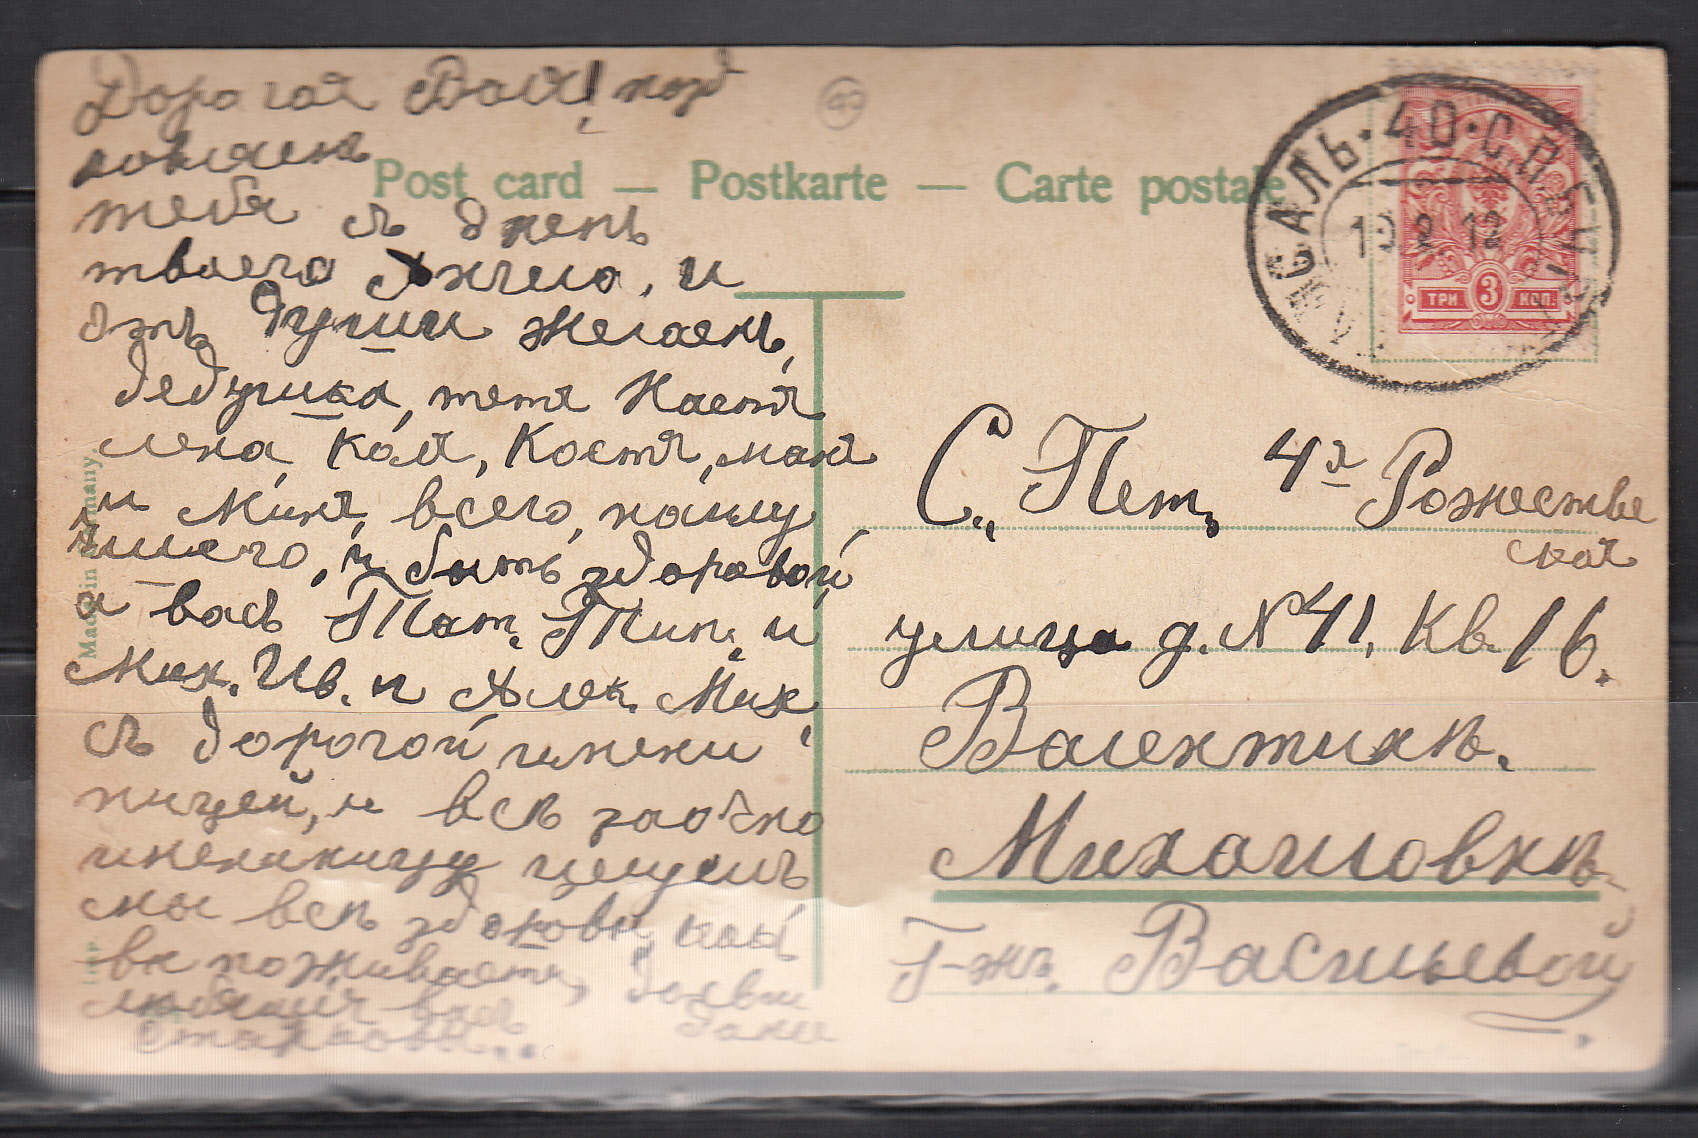 Дорогая Валя! позд
ровляемъ
тебя съ днемъ
твоего Ангела, и
отъ души желаемъ,
дедушка, тетя Настя
лена, Коля, Костя, маня
и Миня, всего, наилу
чшего, и быть здоровой
и васъ Тат. Тип. и
Мих. Ив. и Алек. Мих.
съ дорогой имени
ницей, и все заочно
именинницу целуемъ
мы все здоровы, какъ
вы поживаете,
любящия васъ
Post card — Postkarte — Carte postale
Made in Germany.
САЛЬ · 40 · С.П.
19 2 12
ТРИ 3 КОП.
С. Пет. 4я Рожестве
ская
улица д. №41, Кв. 16.
Валентинъ.
Михайловнъ
Г-жъ. Васильевой.